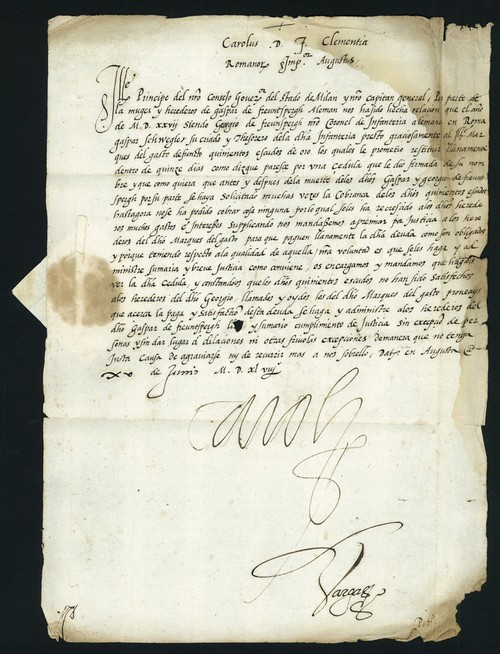 Carolus D. F. Clementia
Romanor. Imp.or Augustus
Ill.e Principe del nro Consejo Gover.or del Stado de Milan y nro capitan general, Por parte de
la muger y herederos de Gaspar de freuntspergh Aleman nos ha sido hecha relacion que el año
de M. D. xxvij siendo Georgio de freuntspergh nro Coronel de Infanteria alemana en Roma
Gaspar Schvegler su criado y Thesorero de la dha Infanteria presto graciosamente al Ill. Mar-
ques del gasto defunto quinientos escudos de oro los quales le prometio restituir llanamente
dentro de quinze dias como dizque paresce por una cedula que le dio firmada de su nom
bre y que como quiera que antes y despues de la muerte de los dhos Gaspar y georgio de freun
spergh por su parte se haya solicitado muchas vezes la cobrança delos dhos quinientos escudos
hasta gora no se ha podido cobrar cosa ninguna por lo qual se les ha recrescido alos dhos herede
ros muchos gastos e Interesses Supplicando nos mandassemos apremiar por Justicia a los here
deros del dho Marques del gasto para que paguen llanamente la dha deuda como son obligados
y porque teniendo respecto ala qualidad de aquella, nra voluntad es que seles haga y ad
ministre sumaria y breve Justicia como conviene, os encargamos y mandamos que hagays
ver la dha cedula, y constandoos que los dhos quinientos escudos no han sido satisfechos
alos herederos del dho Georgio, llamados y oydos los del dho Marques del gasto proveays
que acerca la paga y satisfacho desta deuda se haga y administre alos herederos del
dho Gaspar de freuntspergh y sumario cumplimento de Justicia sin excepcion de per
sonas y sin dar lugar a dilaciones ni otras frivolas excepciones de manera que no tengan
Justa causa de agraviarse ny de recurrir mas a nos sobrello, Dat. en Augusta a
xx de Junio M. D. xl viij
Carol
Vargas